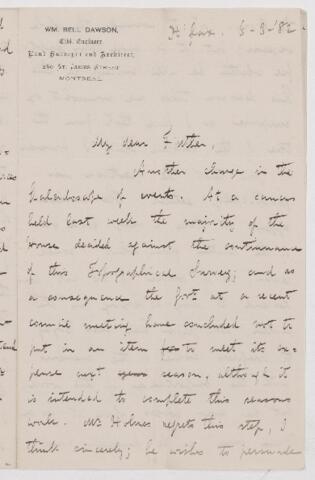 WM. BELL DAWSON,
Civil Engineer
Land Surveyor and Architect,
260 ST. JAMES STREET
MONTREAL
H'fax. 3-3-'82
My dear Father,
Another change in the
Kaleidoscope of events. At a caucus
held last week the majority of the
house decided against the continuance
of this Topographical Survey; and as
a consequence the Govt. at a recent
council meeting have concluded not to
put in an item to meet its ex-
pense next season, although it
is intended to complete this seasons
work. Mr Holmes regrets this step, I
think sincerely; he wishes to persuade